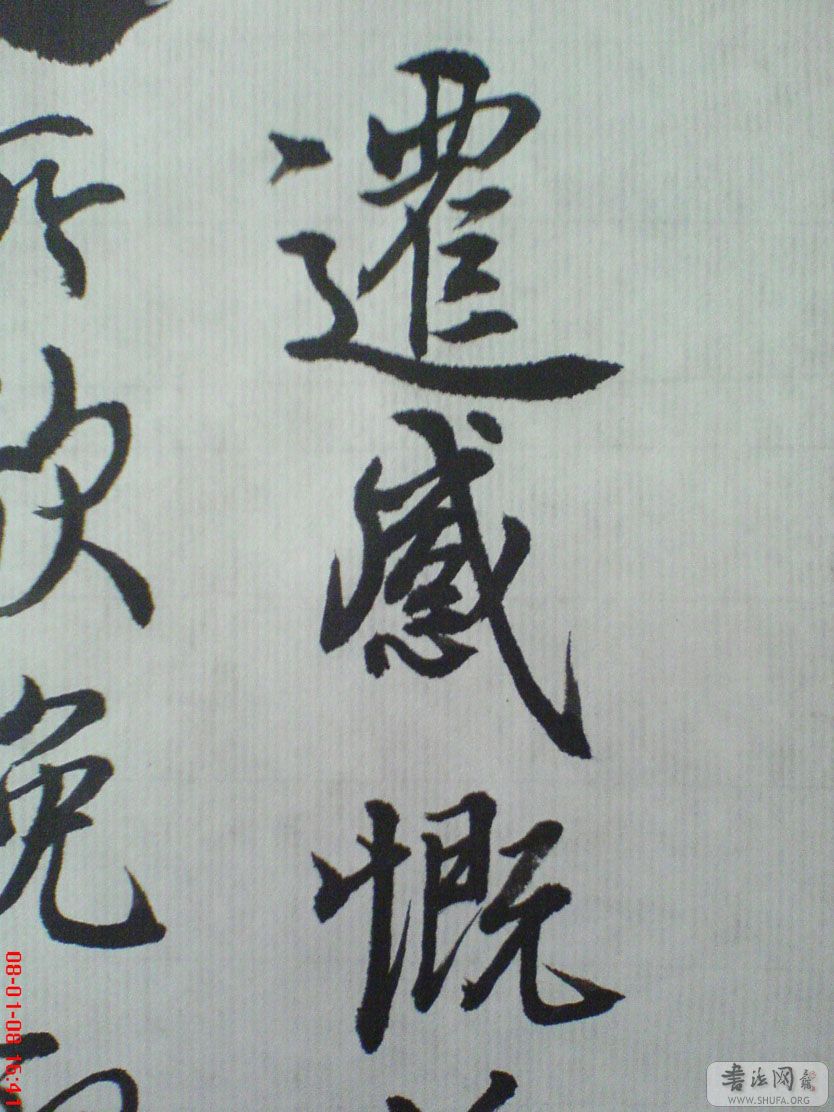 遷感慨
所欣俛
書法网
WWW.SHUFA.ORG
08-01-08 15:41